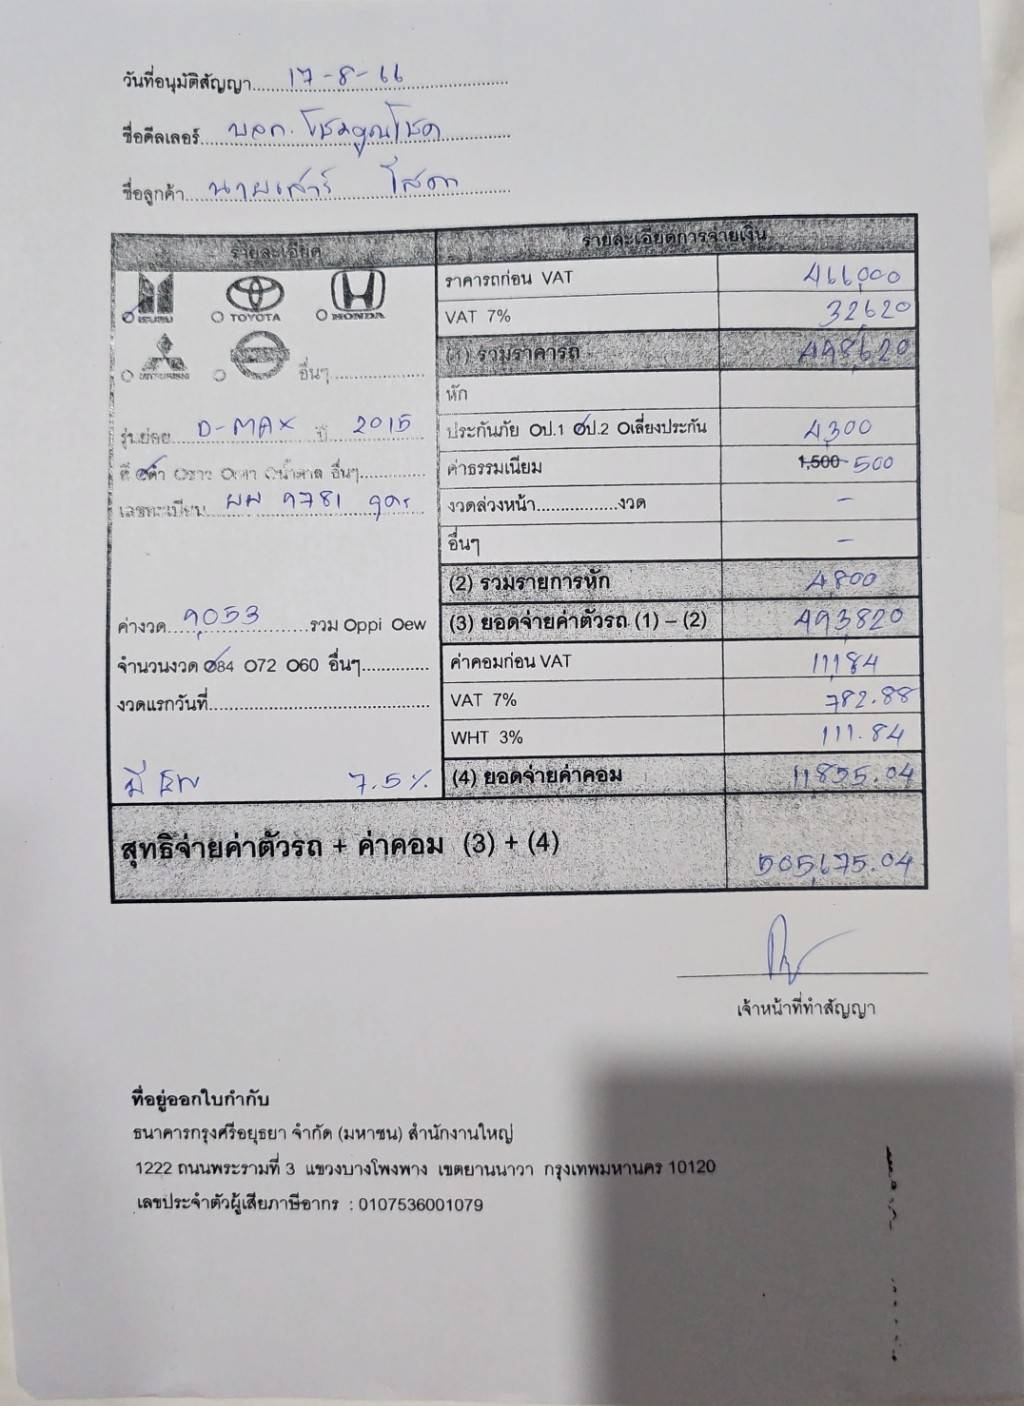 วันที่อนุมัติสัญญา 17-8-66
ชื่อดีลเลอร์ บจก. โชคคูณโชค
ชื่อลูกค้า นายเสาร์ โสดา
รายละเอียด
ISUZU TOYOTA HONDA
MITSUBISHI อื่นๆ
รุ่นย่อย D-MAX ปี 2015
สี ดำ ขาว เทา น้ำตาล อื่นๆ
เลขทะเบียน ผผ 9781 อุดร
ค่างวด 9,053 รวม Oppi Oew
จำนวนงวด 84 O72 O60 อื่นๆ
งวดแรกวันที่
มี EW 7.5%
รายละเอียดการจ่ายเงิน
ราคารถก่อน VAT 466,000
VAT 7% 32,620
(1) รวมราคารถ 498,620
หัก
ประกันภัย Oป.1 Oป.2 Oเลี่ยงประกัน 4,300
ค่าธรรมเนียม 1,500 500
งวดล่วงหน้า.................งวด -
อื่นๆ -
(2) รวมรายการหัก 4,800
(3) ยอดจ่ายค่าตัวรถ (1) – (2) 493,820
ค่าคอมก่อน VAT 11,184
VAT 7% 782.88
WHT 3% 111.84
(4) ยอดจ่ายค่าคอม 11,855.04
สุทธิจ่ายค่าตัวรถ + ค่าคอม (3) + (4) 505,675.04
เจ้าหน้าที่ทำสัญญา
ที่อยู่ออกใบกำกับ
ธนาคารกรุงศรีอยุธยา จำกัด (มหาชน) สำนักงานใหญ่
1222 ถนนพระรามที่ 3 แขวงบางโพงพาง เขตยานนาวา กรุงเทพมหานคร 10120
เลขประจำตัวผู้เสียภาษีอากร : 0107536001079